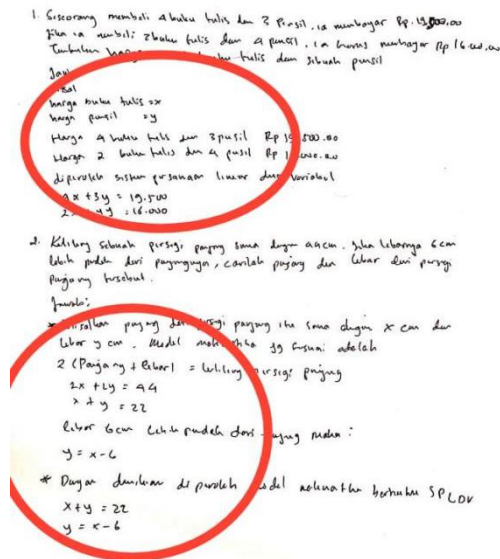 1. Seseorang membeli 4 buku tulis dan 3 pensil, ia membayar Rp. 19.500,00
Jika ia membeli 2 buku tulis dan 4 pensil, ia harus membayar Rp 16.000,00
Tentukan harga buku tulis dan sebuah pensil
Jawab
harga buku tulis = x
harga pensil = y
Harga 4 buku tulis dan 3 pensil Rp 19.500.00
Harga 2 buku tulis dan 4 pensil Rp
diperoleh sistem persamaan linear dua variabel
4x + 3y = 19.500
2x + 4y = 16.000
2. Keliling sebuah persegi panjang sama dengan 44 cm. Jika lebarnya 6 cm
lebih pendek dari panjangnya, carilah panjang dan lebar dari persegi
panjang tersebut.
Jawab:
* Misalkan panjang dari persegi panjang itu sama dengan x cm dan
lebar y cm. Model matematika yg sesuai adalah
2 (Panjang + lebar) = keliling persegi panjang
2x + 2y = 44
x + y = 22
lebar 6cm lebih pendek dari panjang maka :
y = x - 6
* Dengan demikian diperoleh model matematika berbentuk SPLDV
x + y = 22
y = x - 6